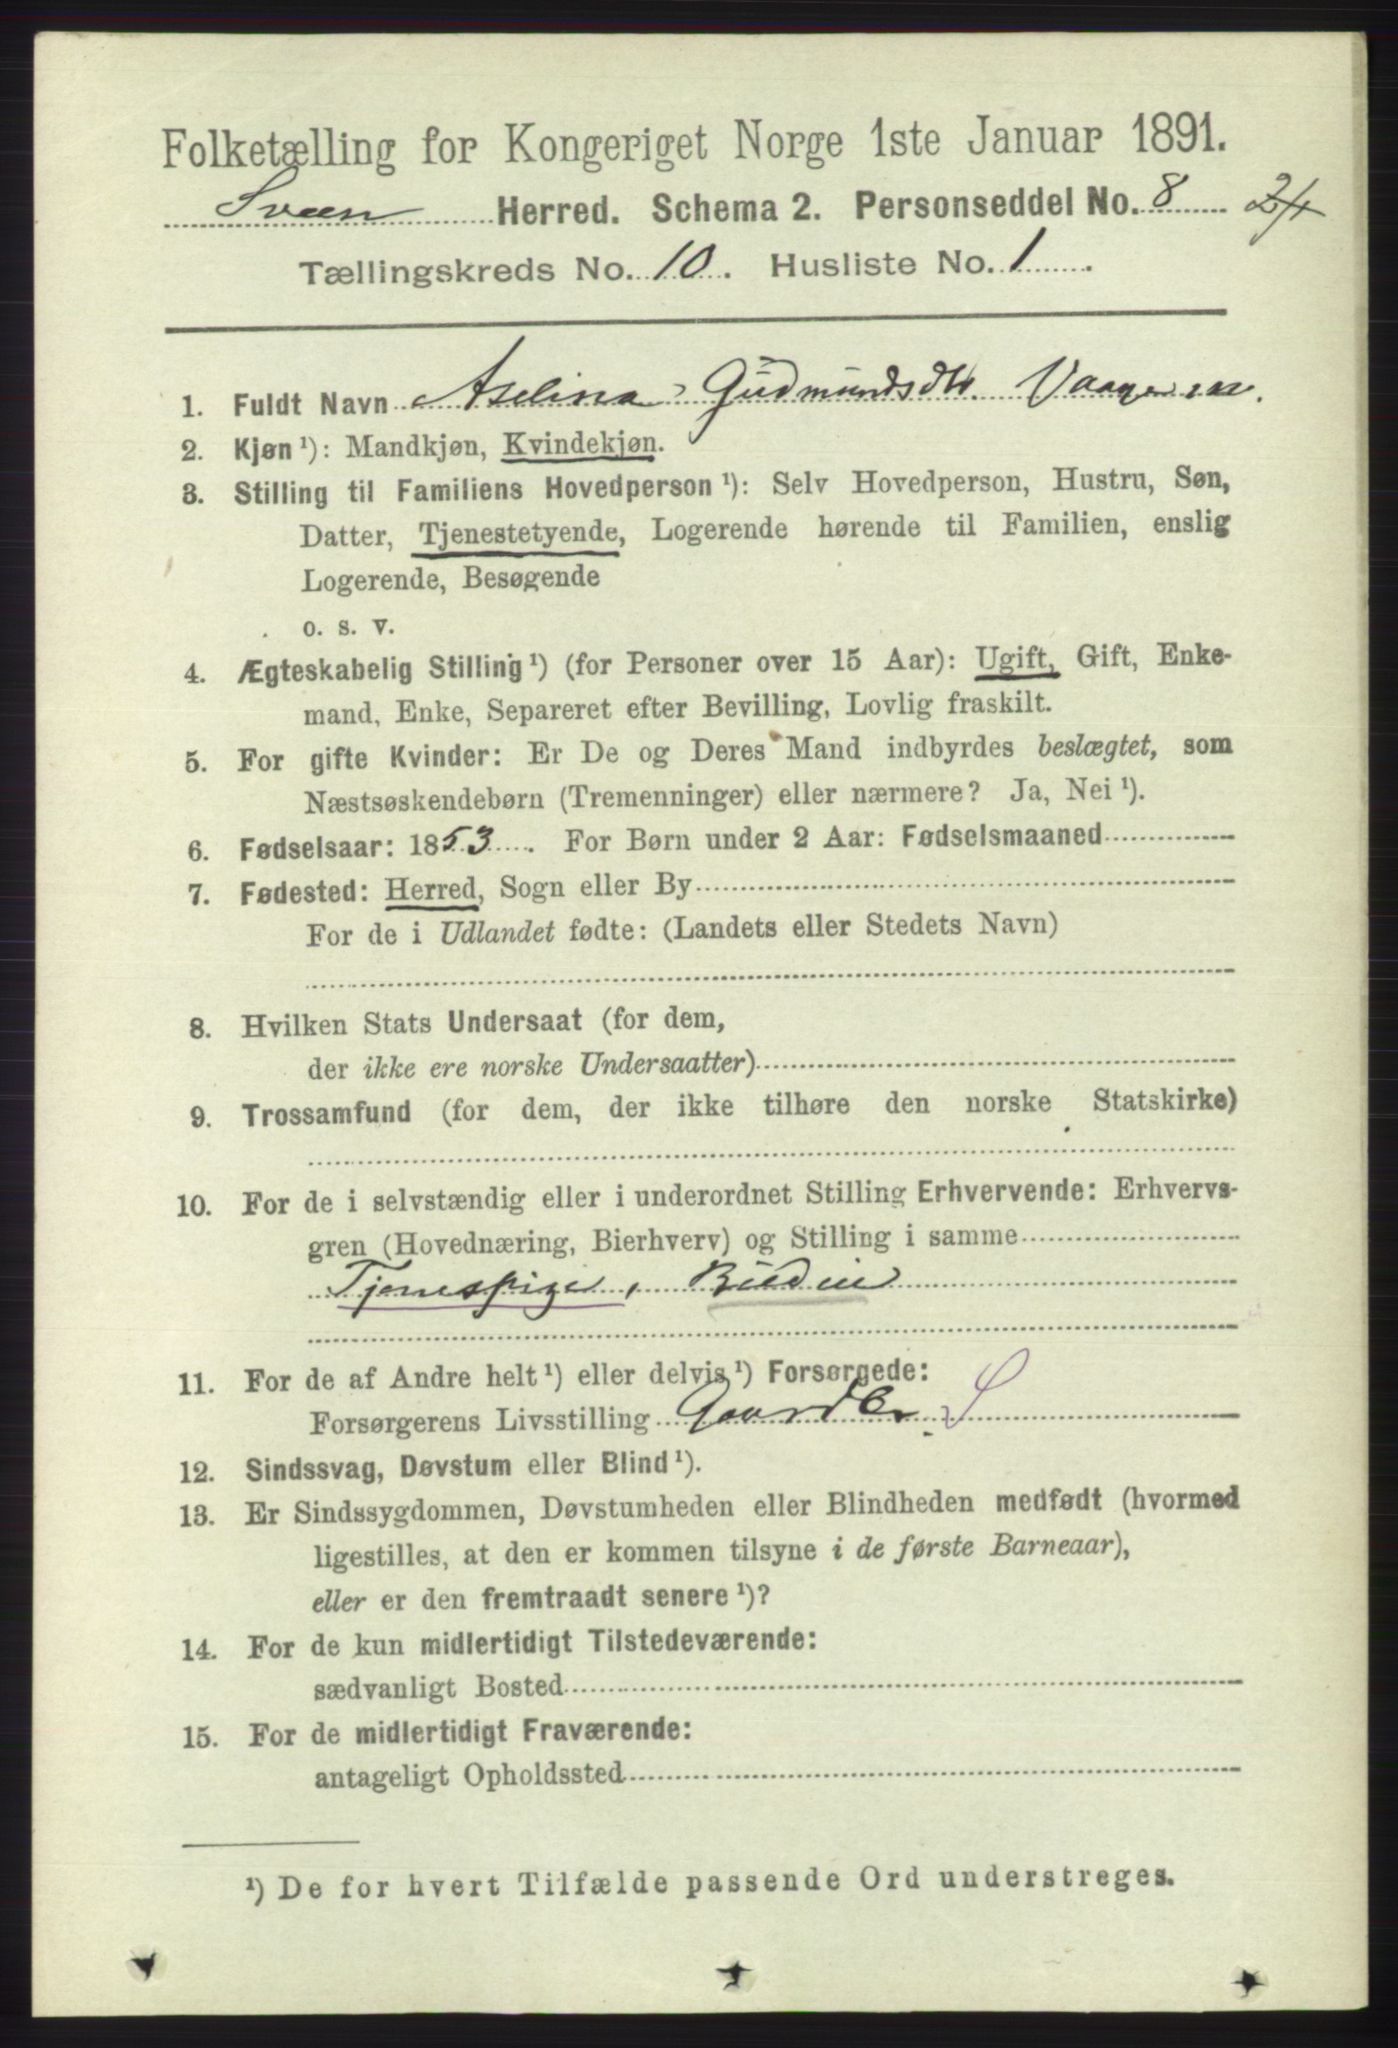 Folketælling for Kongeriget Norge 1ste Januar 1891.
Sveen Herred. Schema 2. Personseddel No. 8 24
Tællingskreds No. 10. Husliste No. 1.
1. Fuldt Navn Aselina Gudmundsdtr. Vaagenn.
2. Kjøn ¹): Mandkjøn, Kvindekjøn.
3. Stilling til Familiens Hovedperson ¹): Selv Hovedperson, Hustru, Søn,
Datter, Tjenestetyende, Logerende hørende til Familien, enslig
Logerende, Besøgende
o. s. v.
4. Ægteskabelig Stilling ¹) (for Personer over 15 Aar): Ugift, Gift, Enke-
mand, Enke, Separeret efter Bevilling, Lovlig fraskilt.
5. For gifte Kvinder: Er De og Deres Mand indbyrdes beslægtet, som
Næstsøskendebørn (Tremenninger) eller nærmere? Ja, Nei ¹).
6. Fødselsaar: 1853. For Børn under 2 Aar: Fødselsmaaned
7. Fødested: Herred, Sogn eller By
For de i Udlandet fødte: (Landets eller Stedets Navn)
8. Hvilken Stats Undersaat (for dem,
der ikke ere norske Undersaatter)
9. Trossamfund (for dem, der ikke tilhøre den norske Statskirke)
10. For de i selvstændig eller i underordnet Stilling Erhvervende: Erhvervs-
gren (Hovednæring, Bierhverv) og Stilling i samme
Tjenespige, Budeie
11. For de af Andre helt ¹) eller delvis ¹) Forsørgede:
Forsørgerens Livsstilling Gaardbr. S
12. Sindssvag, Døvstum eller Blind ¹).
13. Er Sindssygdommen, Døvstumheden eller Blindheden medfødt (hvormed
ligestilles, at den er kommen tilsyne i de første Barneaar),
eller er den fremtraadt senere ¹)?
14. For de kun midlertidigt Tilstedeværende:
sædvanligt Bosted
15. For de midlertidigt Fraværende:
antageligt Opholdssted
¹) De for hvert Tilfælde passende Ord understreges.